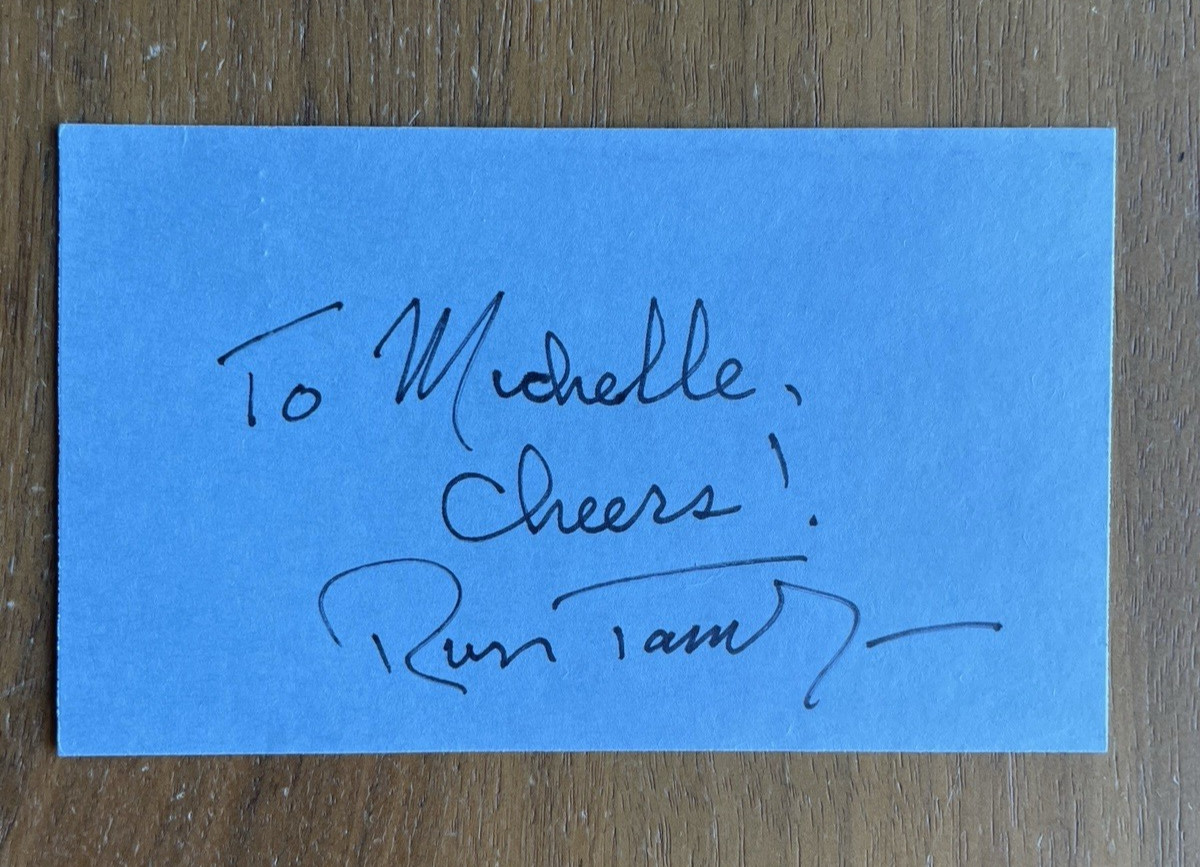 To Michelle,
Cheers!
Russ Tamblyn